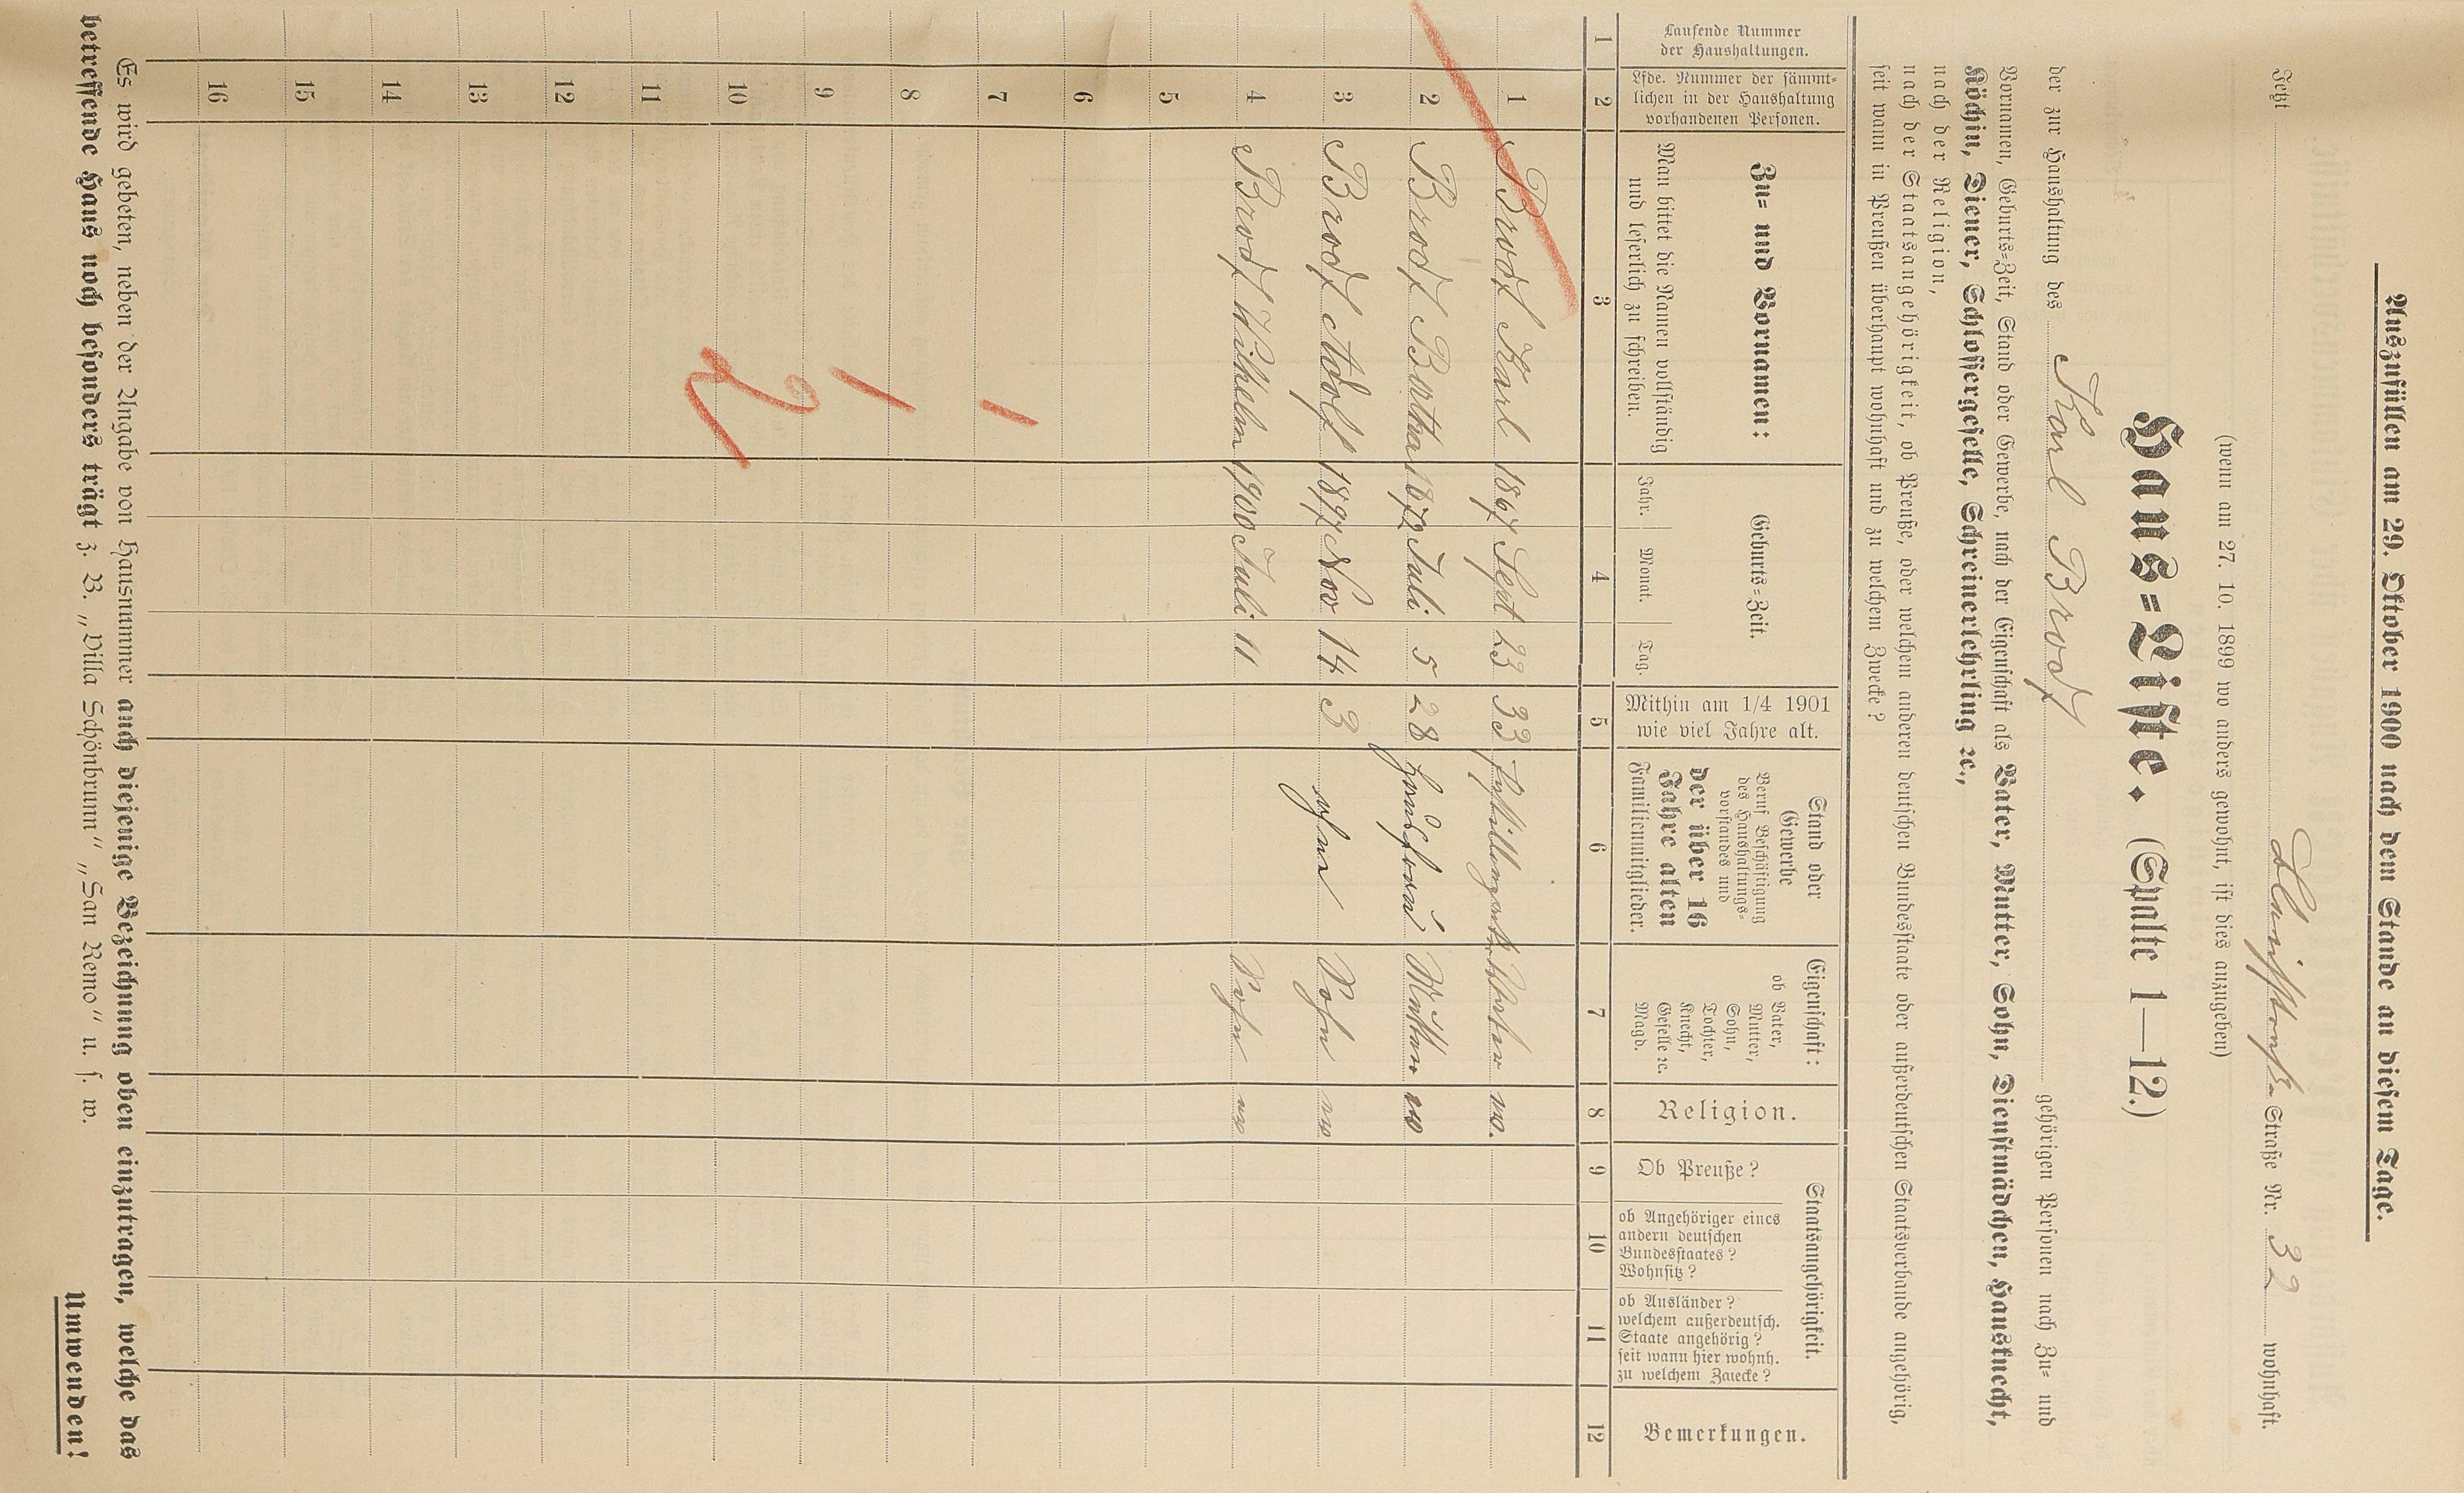 Auszufüllen am 29. Oktober 1900 nach dem Stande an diesem Tage.
Jetzt Straße Nr. 32 wohnhaft.
(wenn am 27. 10. 1899 wo anders gewohnt, ist dies anzugeben)
Haus=Liste. (Spalte 1—12.)
der zur Haushaltung des Karl Brod gehörigen Personen nach Zu= und
Vornamen, Geburts=Zeit, Stand oder Gewerbe, nach der Eigenschaft als Vater, Mutter, Sohn, Dienstmädchen, Hausknecht,
Köchin, Diener, Schlossergeselle, Schreinerlehrling ꝛc.,
nach der Religion,
nach der Staatsangehörigkeit, ob Preuße, oder welchem anderen deutschen Bundesstaate oder außerdeutschen Staatsverbande angehörig,
seit wann in Preußen überhaupt wohnhaft und zu welchem Zwecke?
Laufende Nummer
der Haushaltungen.
Lfde. Nummer der sämmt=
lichen in der Haushaltung
vorhandenen Personen.
Zu= und Vornamen:
Man bittet die Namen vollständig
und leserlich zu schreiben.
Geburts=Zeit.
Jahr. Monat. Tag.
Mithin am 1/4 1901
wie viel Jahre alt.
Stand oder
Gewerbe
Beruf Beschäftigung
des Haushaltungs=
vorstandes und
der über 16
Jahre alten
Familienmitglieder.
Eigenschaft:
ob Vater,
Mutter,
Sohn,
Tochter,
Knecht,
Geselle ꝛc.
Magd.
Religion.
Staatsangehörigkeit.
Ob Preuße?
ob Angehöriger eines
andern deutschen
Bundesstaates?
Wohnsitz?
ob Ausländer?
welchem außerdeutsch.
Staate angehörig?
seit wann hier wohnh.
zu welchem Zwecke?
Bemerkungen.
1 2 3 4 5 6 7 8 9 10 11 12
1 Brod Karl 1867 Sept 23 33 Vater ev.
2 Brod Bertha 1872 Juli 5 28 Hausfrau Mutter ev
3 Brod Adolf 1897 Nov 14 3 ohne Sohn ev
4 Brod Wilhelm 1900 Juli 11 Sohn ev
5
6
7
8
9
10
11
12
13
14
15
16
Es wird gebeten, neben der Angabe von Hausnummer auch diejenige Bezeichnung oben einzutragen, welche das
betreffende Haus noch besonders trägt z. B. „Villa Schönbrunn" „San Remo" u. s. w.
Umwenden!